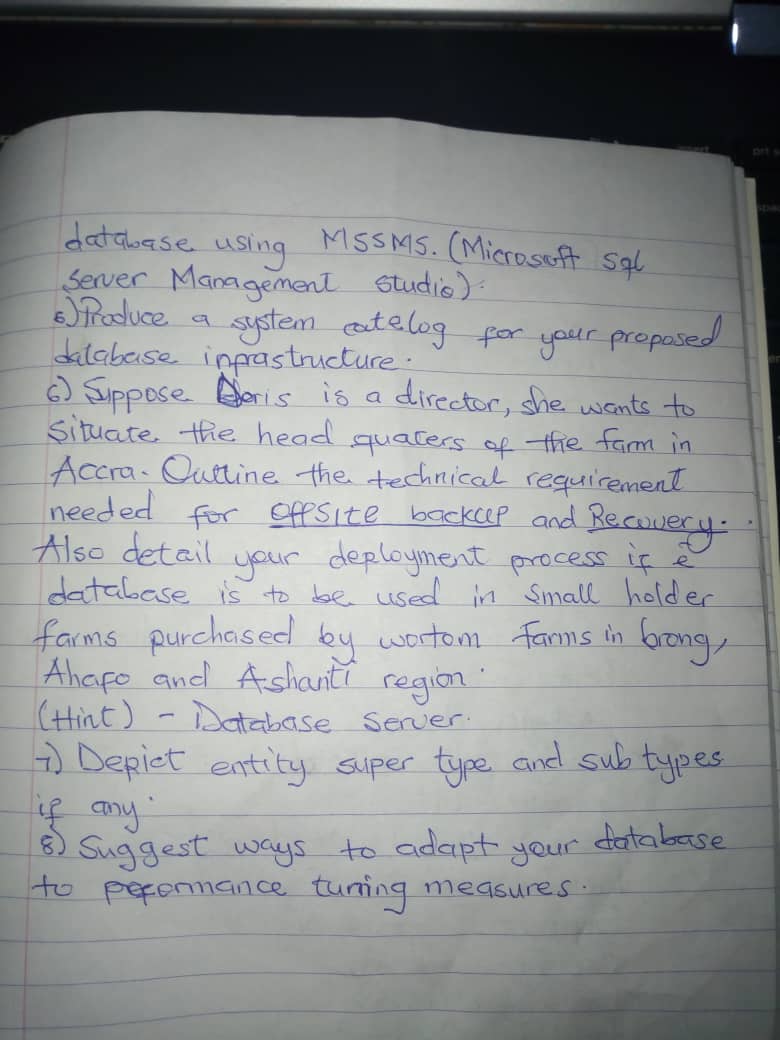 database using MSSMS. (Microsoft sql
Server Management Studio).
5) Produce a system catelog for your proposed
database inprastructure.
6) Suppose Doris is a director, she wants to
situate the head quaters of the farm in
Accra. Outline the technical requirement
needed for OffSite backup and Recovery.
Also detail your deployment process if e
database is to be used in small holder
farms purchased by farms in brong,
Ahafo and Ashanti region.
(Hint) - Database Server.
7) Depict entity super type and sub types
if any.
8) Suggest ways to adapt your database
to peformance tuning measures.